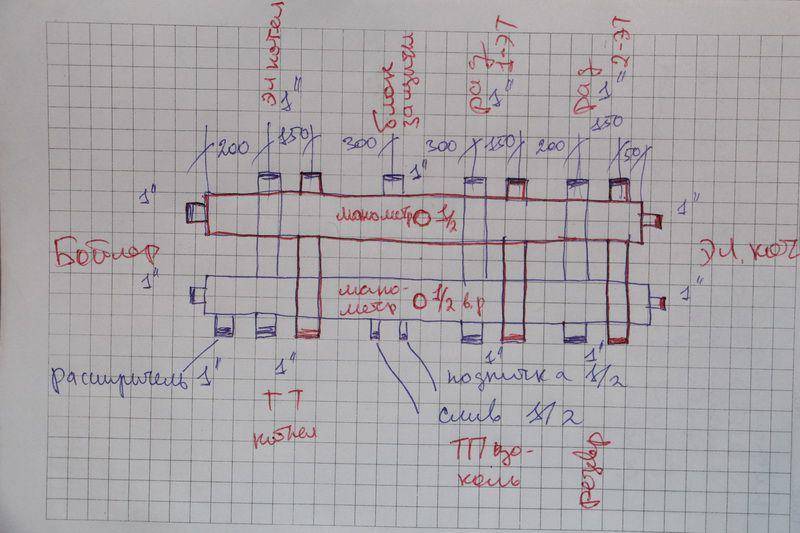 эл котел
1"
Блок
защиты
рад
1-ЭТ
1"
рад
2-ЭТ
1"
200
150
300
1"
300
150
200
150
50
1"
манометр 1/2
1"
Бойлер
эл. кот
1"
мано-
метр
1/2 в.р
1"
расширитель 1"
1"
ТТ
котел
подпитка 1/2
слив 1/2
1"
ТП цо-
коль
1"
резерв